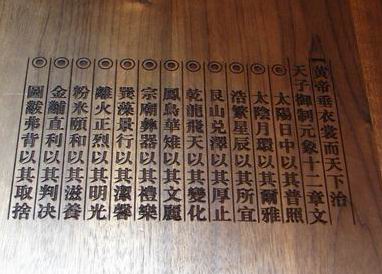 黄帝垂衣裳而天下治
天子御制元象十二章文
太陽日中以其普照
太陰月環以其爾雅
浩繁星辰以其所宜
艮山兑澤以其厚止
乾龍飛天以其變化
鳳鳥華雉以其文麗
宗廟彝器以其禮樂
巽藻景行以其潔馨
離火正烈以其明光
粉米頤和以其滋養
金黼直利以其判决
圖黻弗背以其取捨